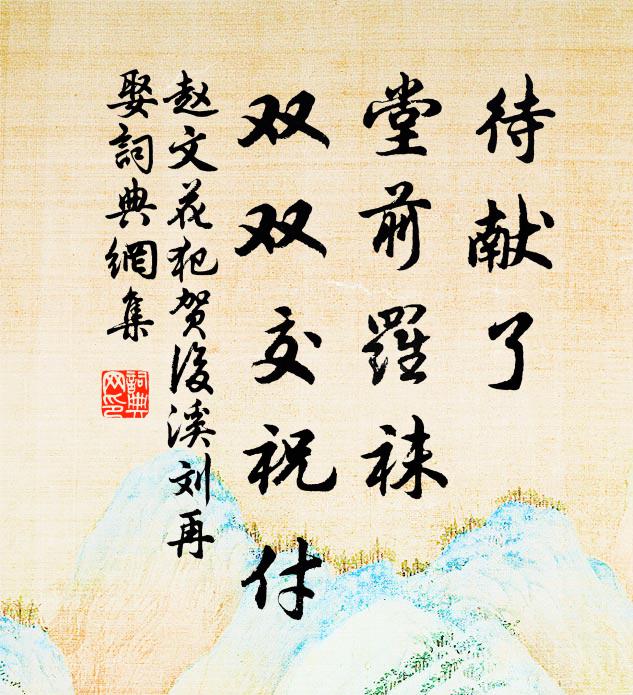 待献了
堂前羅袜
双双交祝付
赵文花犯贺後溪刘再
娶詞典網集
詞典網印